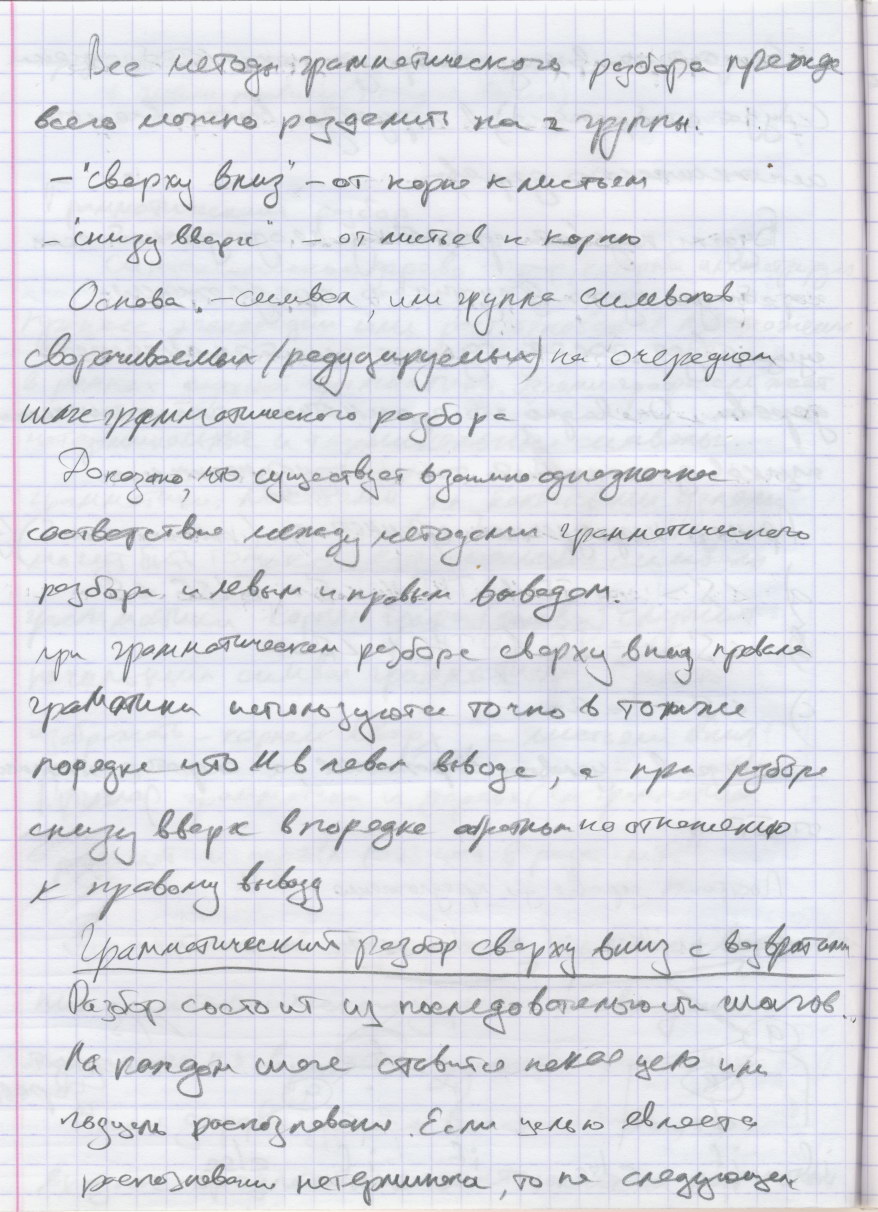 Все методы грамматического разбора прежде
всего можно разделить на 2 группы.
– "сверху вниз" – от корня к листьям
– "снизу вверх" – от листьев к корню
Основа – символ, или группа символов
сворачиваемых (редуцируемых) на очередном
шаге грамматического разбора
Доказано, что существует взаимно однозначное
соответствие между методами грамматического
разбора и левым и правым выводом.
при грамматическом разборе сверху вниз правила
граматики используются точно в том же
порядке что и в левом выводе, а при разборе
снизу вверх в порядке обратном по отношению
к правому выводу
Грамматический разбор сверху вниз с возвратами
Разбор состоит из последовательности шагов.
На каждом шаге ставится некая цель или
подцель распознавания. Если целью является
распознавание нетерминала, то на следующем